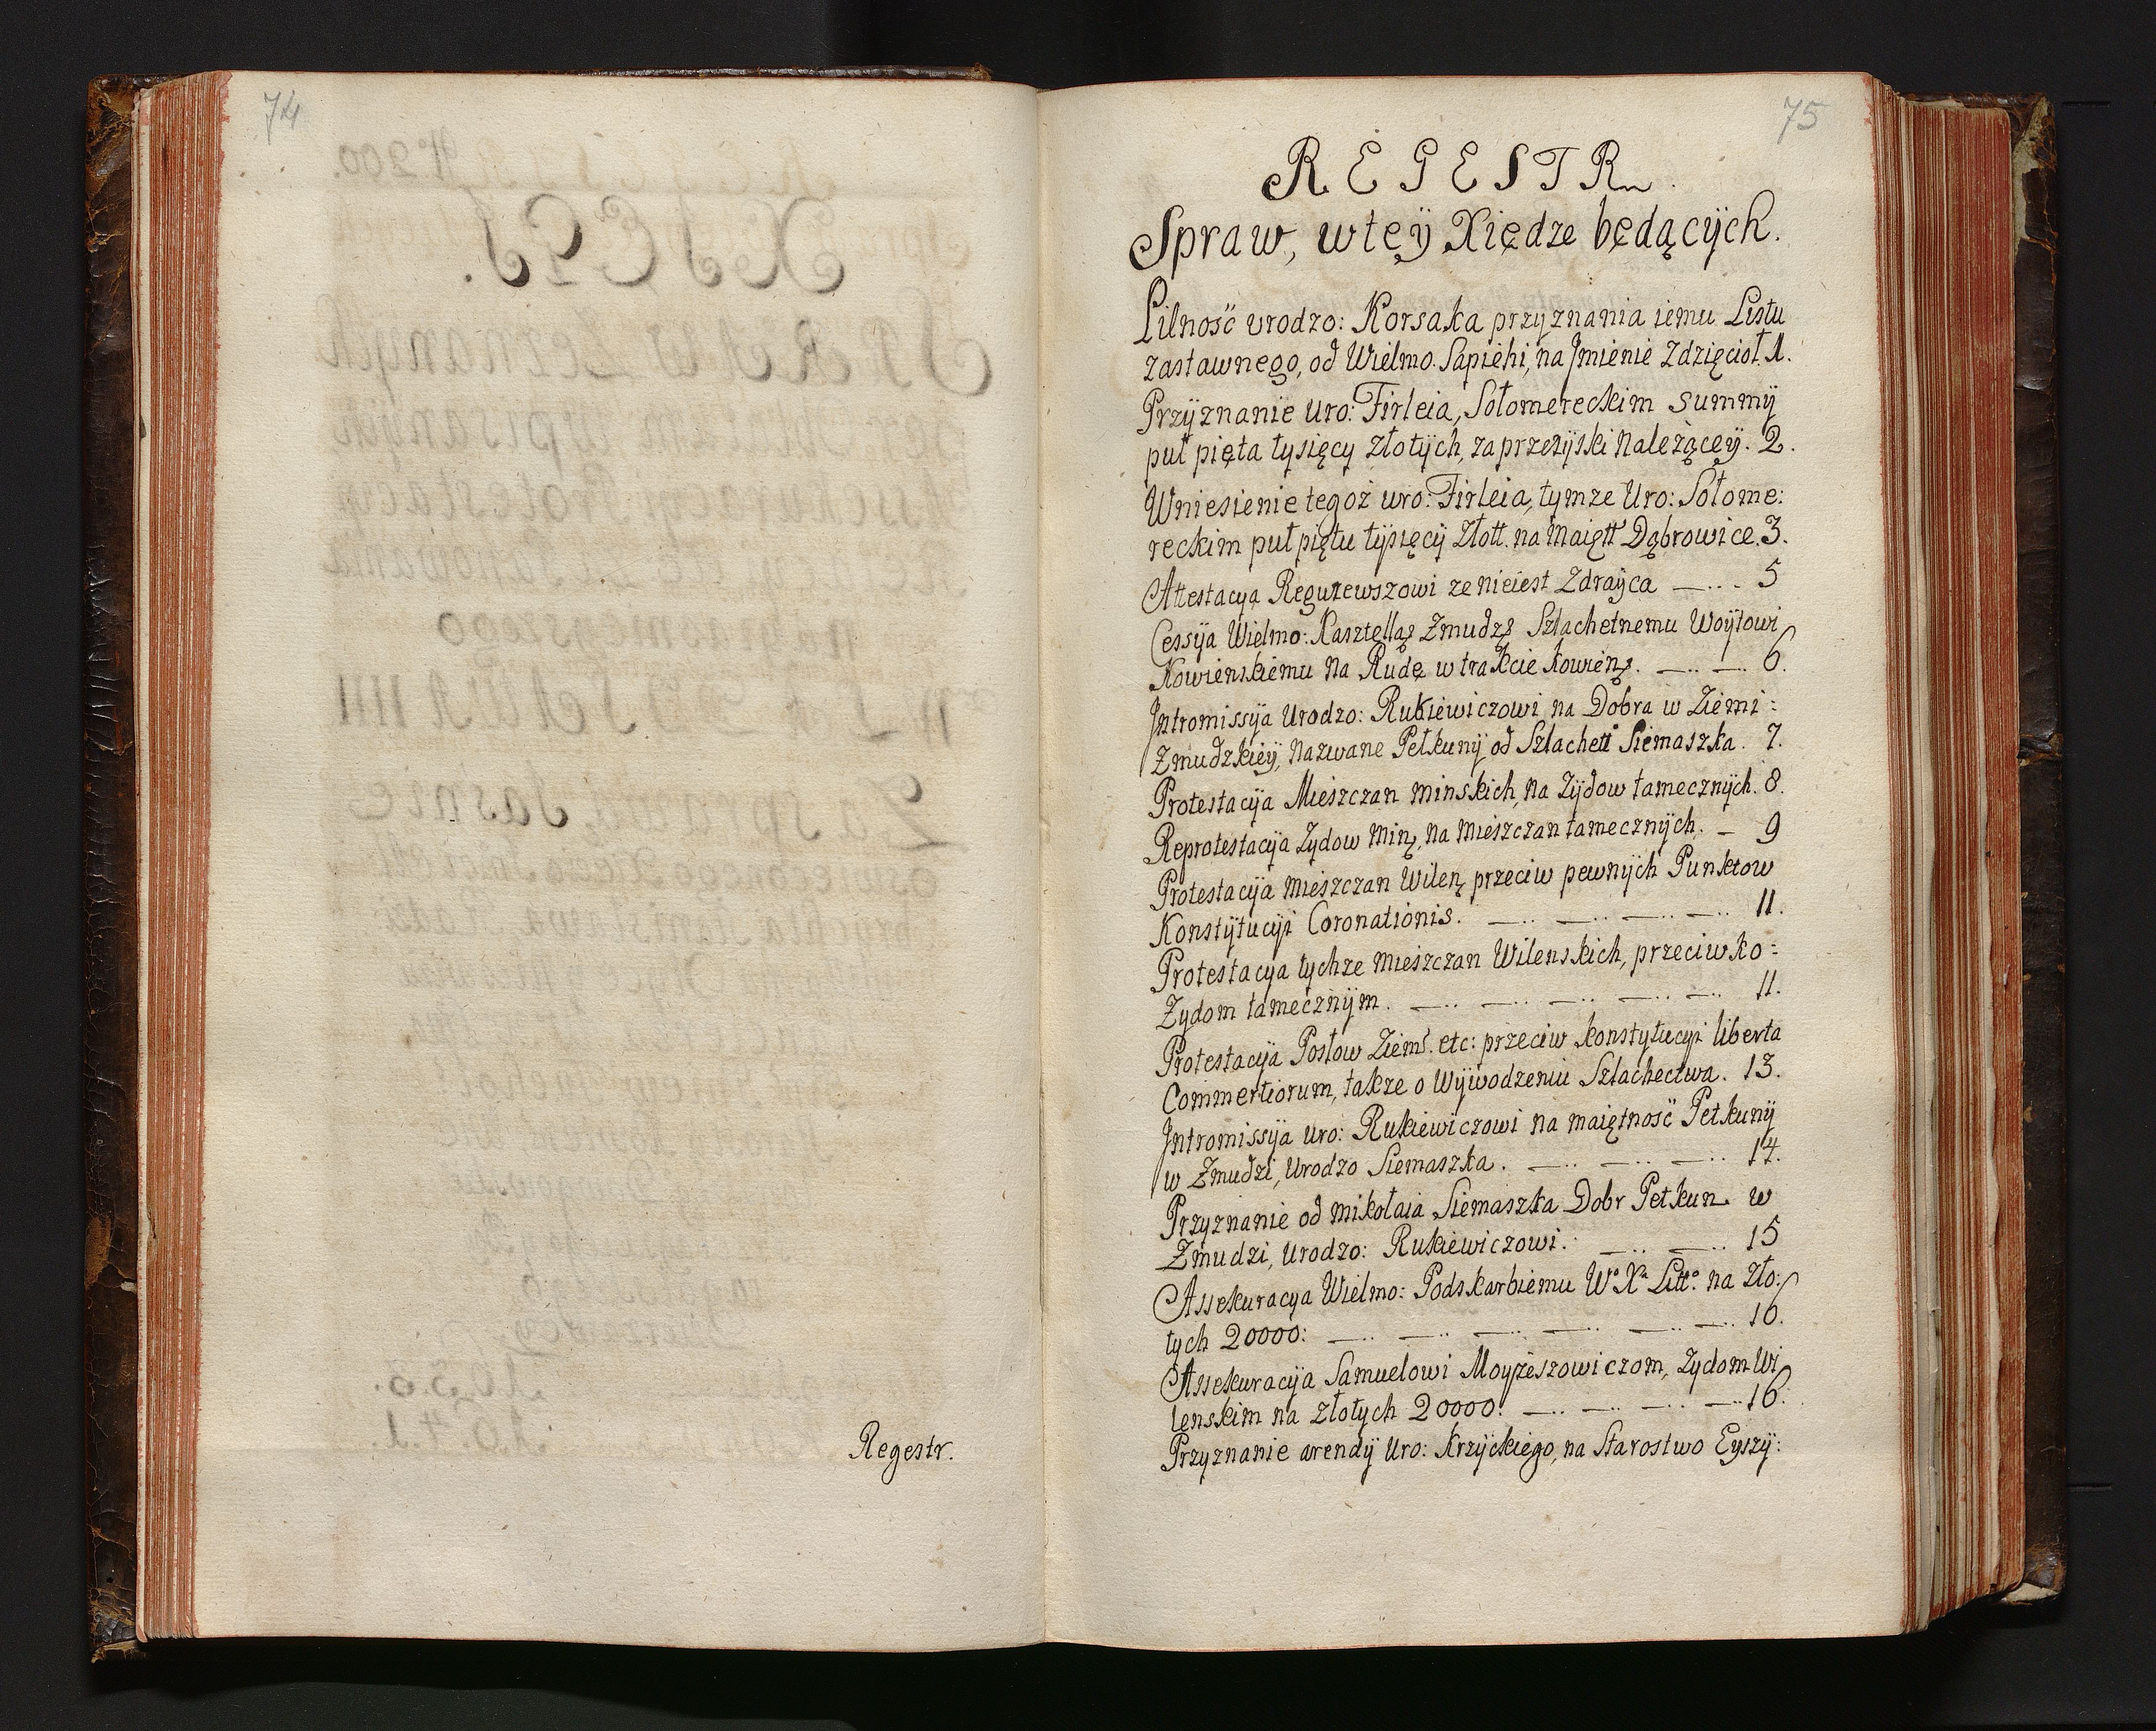 74
Regestr.
75
REGESTR
Spraw, w teÿ Xiędze będącÿch.
Pilność urodzo: Korsaka przyznania iemu Listu
zastawnego, od Wielmo. Sapiehi, na Jmienie Zdzięcioł. 1.
Przÿznanie uro: Firleia, Sołomereckim summÿ
puł pięta tysięcy złotÿch, za przezÿski należąceÿ. 2.
Wniesienie tegoż uro: Firleia, tymze Uro: Sołome:
reckim puł piętu tÿsięcÿ Złott. na Maiętt Dąbrowice. 3.
Attestacya Regurewszowi ze nieiest Zdraÿca — 5
Cessÿa Wielmo: Kasztellą Zmudz Szlachetnemu Woÿtowi
Kowienskiemu na Rudę w trakcie kowien. — — 6.
Jntromissÿa Urodzo: Rukiewiczowi na Dobra w Ziemi:
Zmudzkieÿ, nazwane Petkunÿ od Szlachett Siemaszka. 7.
Protestacÿa Mieszczan minskich, na Zÿdow tamecznÿch. 8.
Reprotestacÿa Zydow Min, na Mieszczan tamecznÿch. — 9
Protestacÿa mieszczan Wilen przeciw pewnÿch Punktow
Konstÿtucÿi Coronationis. — — — — 11.
Protestacya tychze mieszczan Wilenskich, przeciwko:
Zydom tamecznÿm. — — — — — 11.
Protestacÿa Posłow Ziems. etc: przeciw konstytucyi liberta
Commertiorum, takze o Wÿwodzeniu Szlachectwa. 13.
Jntromissÿa uro: Rukiewiczowi na maiętność Petkunÿ
w Zmudzi, Urodzo Siemaszka. — — — 14.
Przyznanie od mikołaia Siemaszka Dobr Petkun w
Zmudzi, Urodzo: Rukiewiczowi. — — 15
Assekuracya Wielmo: Podskarbiemu Wo Xa Litto. na zło:
tych 20000: — — — — — — 16.
Assekuracÿa Samuelowi Moyzeszowiczom, Zydom Wi
lenskim na złotych 20000: — — — — 16.
Przyznanie arendÿ Uro: Krzÿckiego, na Starostwo Eyszÿ: